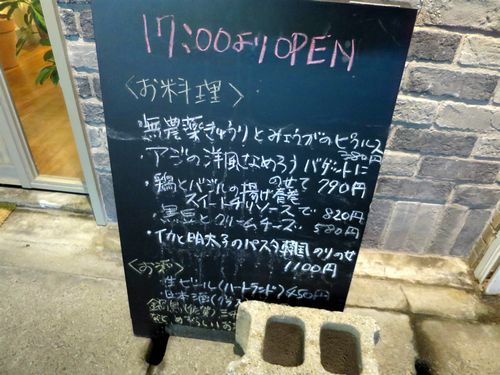 17:00より OPEN
〈お料理〉
・無農薬きゅうりとみょうがのピクルス
380円
・アジの洋風なめろう バゲットに
のせて 790円
・鶏とバジルの揚げ春巻
スイートチリソースで 820円
・黒豆とクリームチーズ 580円
・イカと明太子のパスタ 韓国のりのせ
1100円
〈お酒〉
生ビール(ハートランド) 450円
日本酒(グラス
鍋島(佐賀)
など めずらしいお